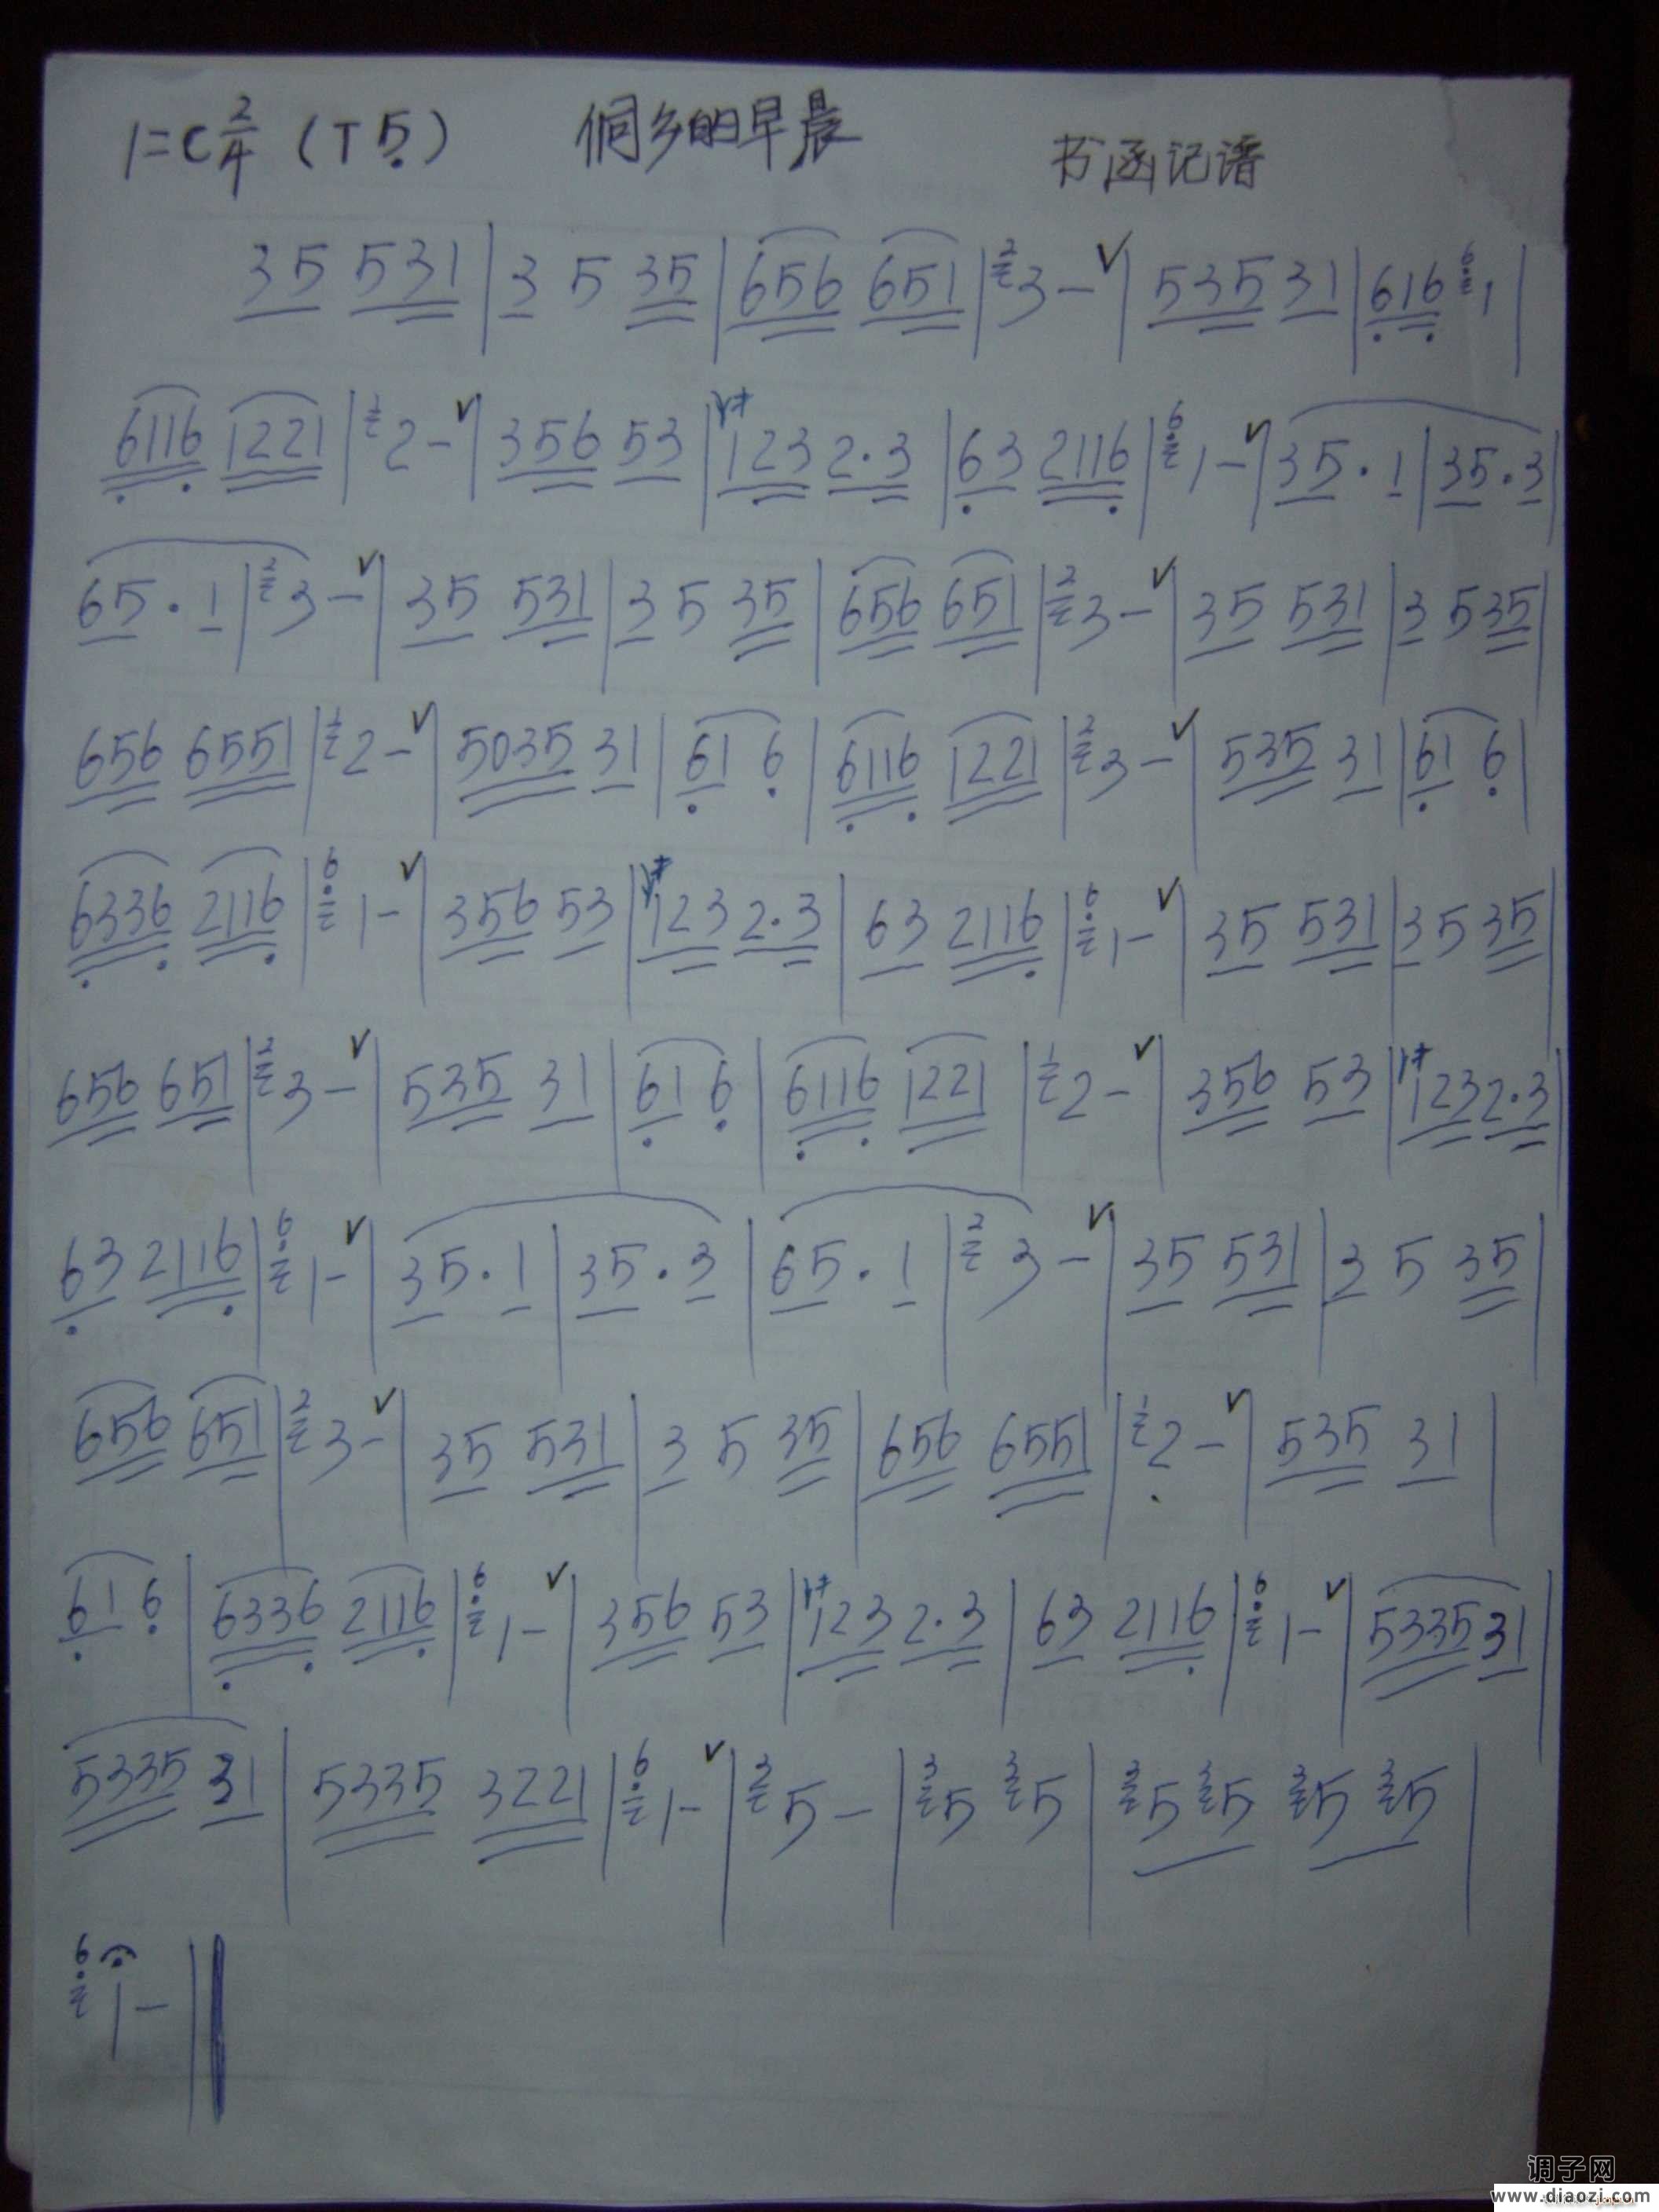 1=C 2/4 (T 5̣) 侗乡的早晨 书涵记谱
35 531 | 3 5 35 | 656 651 | 2 3 - ∨ | 535 31 | 616 6 1 |
6116 1221 | 1 2 - ∨ | 356 53 | 123 2·3 | 63 2116 | 6 1 - ∨ | 35·1 | 35·3 |
65·1 | 2 3 - ∨ | 35 531 | 3 5 35 | 656 651 | 2 3 - ∨ | 35 531 | 3 5 35 |
656 6551 | 1 2 - ∨ | 5035 31 | 61 6 | 6116 1221 | 2 3 - ∨ | 535 31 | 61 6 |
6336 2116 | 6 1 - ∨ | 356 53 | 123 2·3 | 63 2116 | 6 1 - ∨ | 35 531 | 3 5 35 |
656 651 | 2 3 - ∨ | 535 31 | 61 6 | 6116 1221 | 1 2 - ∨ | 356 53 | 123 2·3 |
63 2116 | 6 1 - ∨ | 35·1 | 35·3 | 65·1 | 2 3 - ∨ | 35 531 | 3 5 35 |
656 651 | 2 3 - ∨ | 35 531 | 3 5 35 | 656 6551 | 1 2 - ∨ | 535 31 |
61 6 | 6336 2116 | 6 1 - ∨ | 356 53 | 123 2·3 | 63 2116 | 6 1 - ∨ | 5335 31 |
5335 31 | 5335 3221 | 6 1 - ∨ | 3 5 - | 3 5 3 5 | 3 5 3 5 3 5 3 5 |
6 1 - ‖
调子网
www.diaozi.com